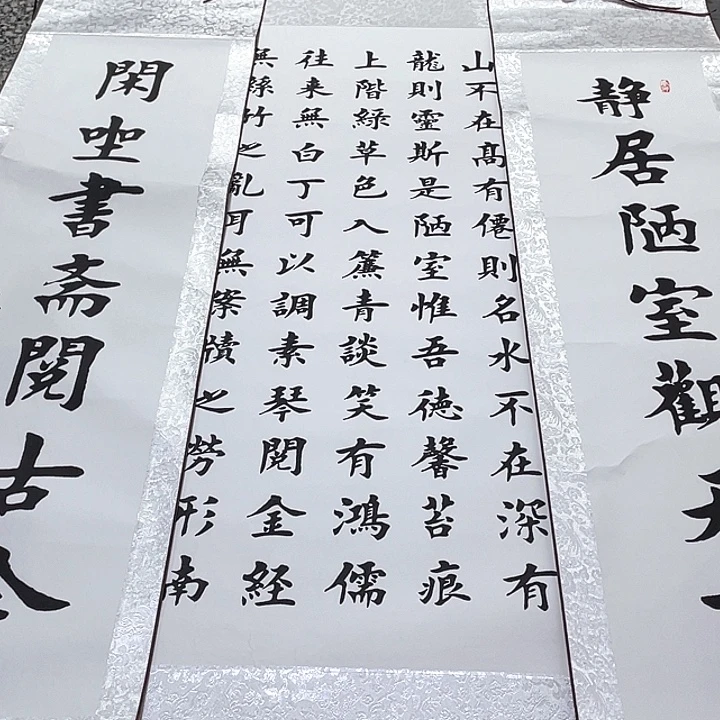 静居陋室觀天
山不在髙有僊則名水不在深有
龍則靈斯是陋室惟吾徳馨苔痕
上階緑草色入簾青談笑有鴻儒
往来無白丁可以調素琴閱金経
無絲竹之亂耳無案牘之勞形南
閑坐書斋閱古今